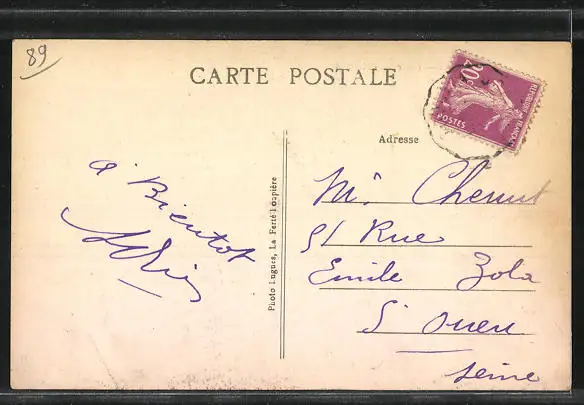 89
CARTE POSTALE
20c
REPUBLIQUE FRANCAISE
POSTES
Adresse
à Bientot
Photo Lugues, La Ferté-Loupière
Mr
51 Rue
Emile Zola
St Ouen
Seine